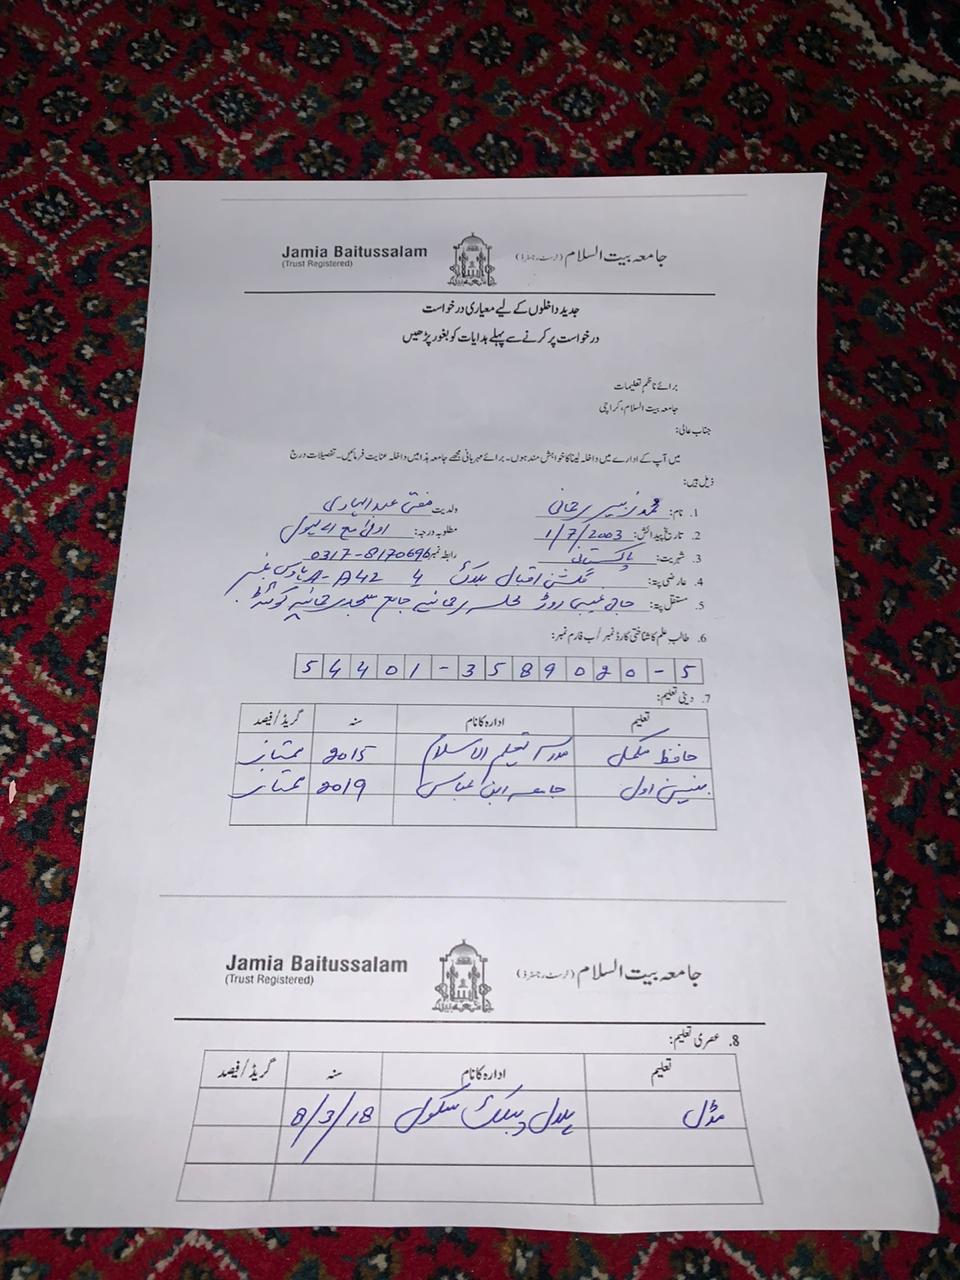 Jamia Baitussalam
(Trust Registered)
جامعہ بیت السلام (ٹرسٹ رجسٹرڈ)
جدید داخلوں کے لیے معیاری درخواست
درخواست پر کرنے سے پہلے ہدایات کو بغور پڑھیں
برائے ناظم تعلیمات
جامعہ بیت السلام، کراچی
جناب عالی:
میں آپ کے ادارے میں داخلہ لینا کا خواہش مند ہوں۔ برائے مہربانی مجھے جامعہ ہذا میں داخلہ عنایت فرمائیں۔ تفصیلات درج
ذیل ہیں:
1. نام: محمد زبیر رحمانی ولدیت مفتی عبدالہادی
2. تاریخ پیدائش: 1/7/2003 مطلوبہ درجہ: اولیٰ مع اے لیول
3. شہریت: پاکستانی رابطہ نمبر 0317-8170696
4. عارضی پتہ: گلشن اقبال بلاک 4 A-A42 ہاوس نمبر
5. مستقل پتہ: حاجی غیبی روڑ محلہ رحمانیہ جامع مسجد رحمانیہ کوئٹہ
6. طالب علم کا شناختی کارڈ نمبر / ب فارم نمبر:
54401-3589020-5
7. دینی تعلیم:
تعلیم ادارہ کا نام سنہ گریڈ/فیصد
حافظ مکمل مدرسہ تعلیم الاسلام 2015 ممتاز
بنین اول جامعہ ابن عباس 2019 ممتاز
Jamia Baitussalam
(Trust Registered)
جامعہ بیت السلام (ٹرسٹ رجسٹرڈ)
8. عصری تعلیم:
تعلیم ادارہ کا نام سنہ گریڈ/فیصد
مڈل ہلال پبلک سکول 8/3/18